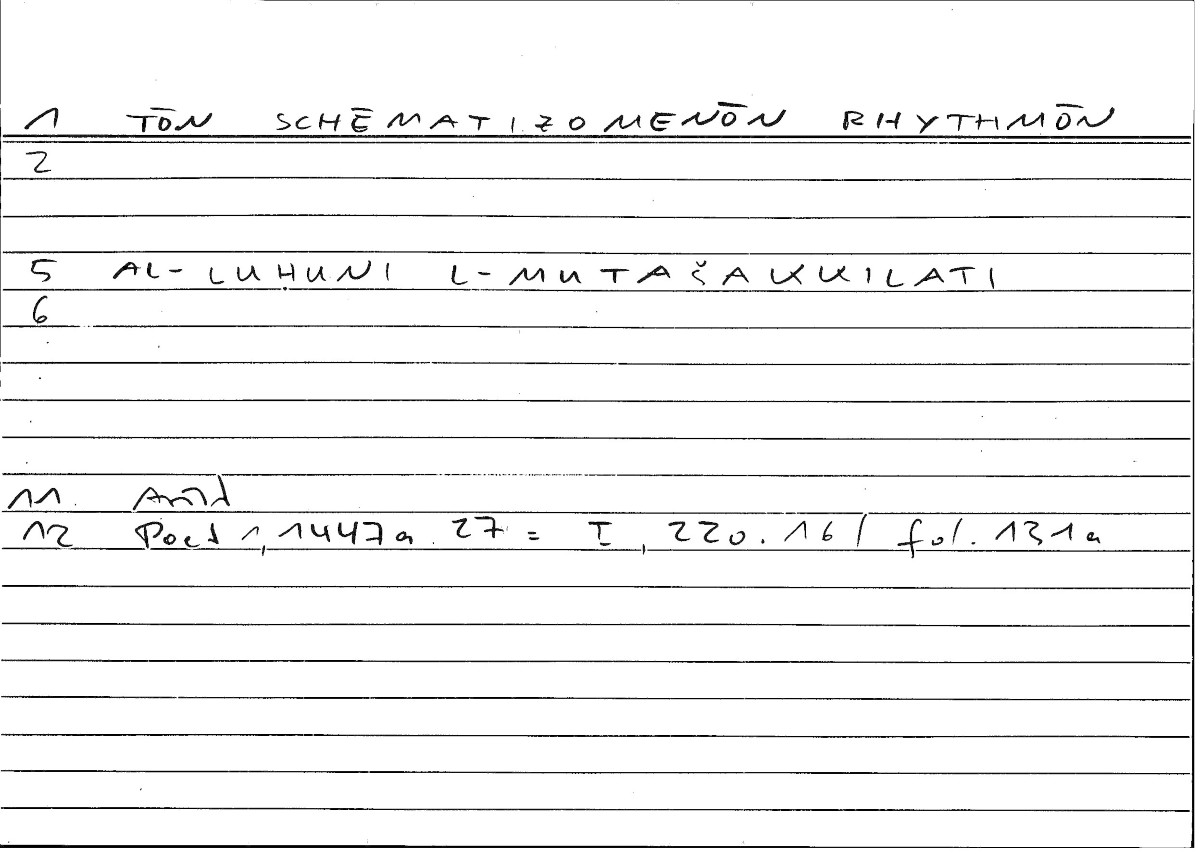 1 TŌN SCHĒMATIZOMENŌN RHYTHMŌN
2
5 AL-LUḤUNI L-MUTAŠAKKILATI
6
11. Arist
12 Poet 1, 1447a 27 = I, 220.16 / fol. 131a